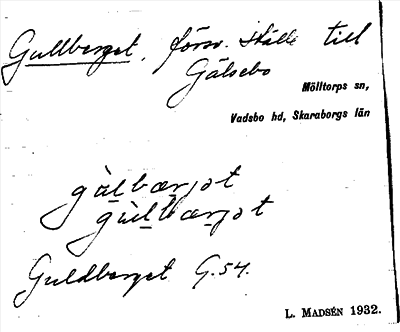 Gullberget, försv. ställe till
Gälsebo
Mölltorps sn,
Vadsbo hd, Skaraborgs län
gùl̠bær̠jət
gùl̠bær̠jət
Guldberget G.54.
L. MADSÉN 1932.